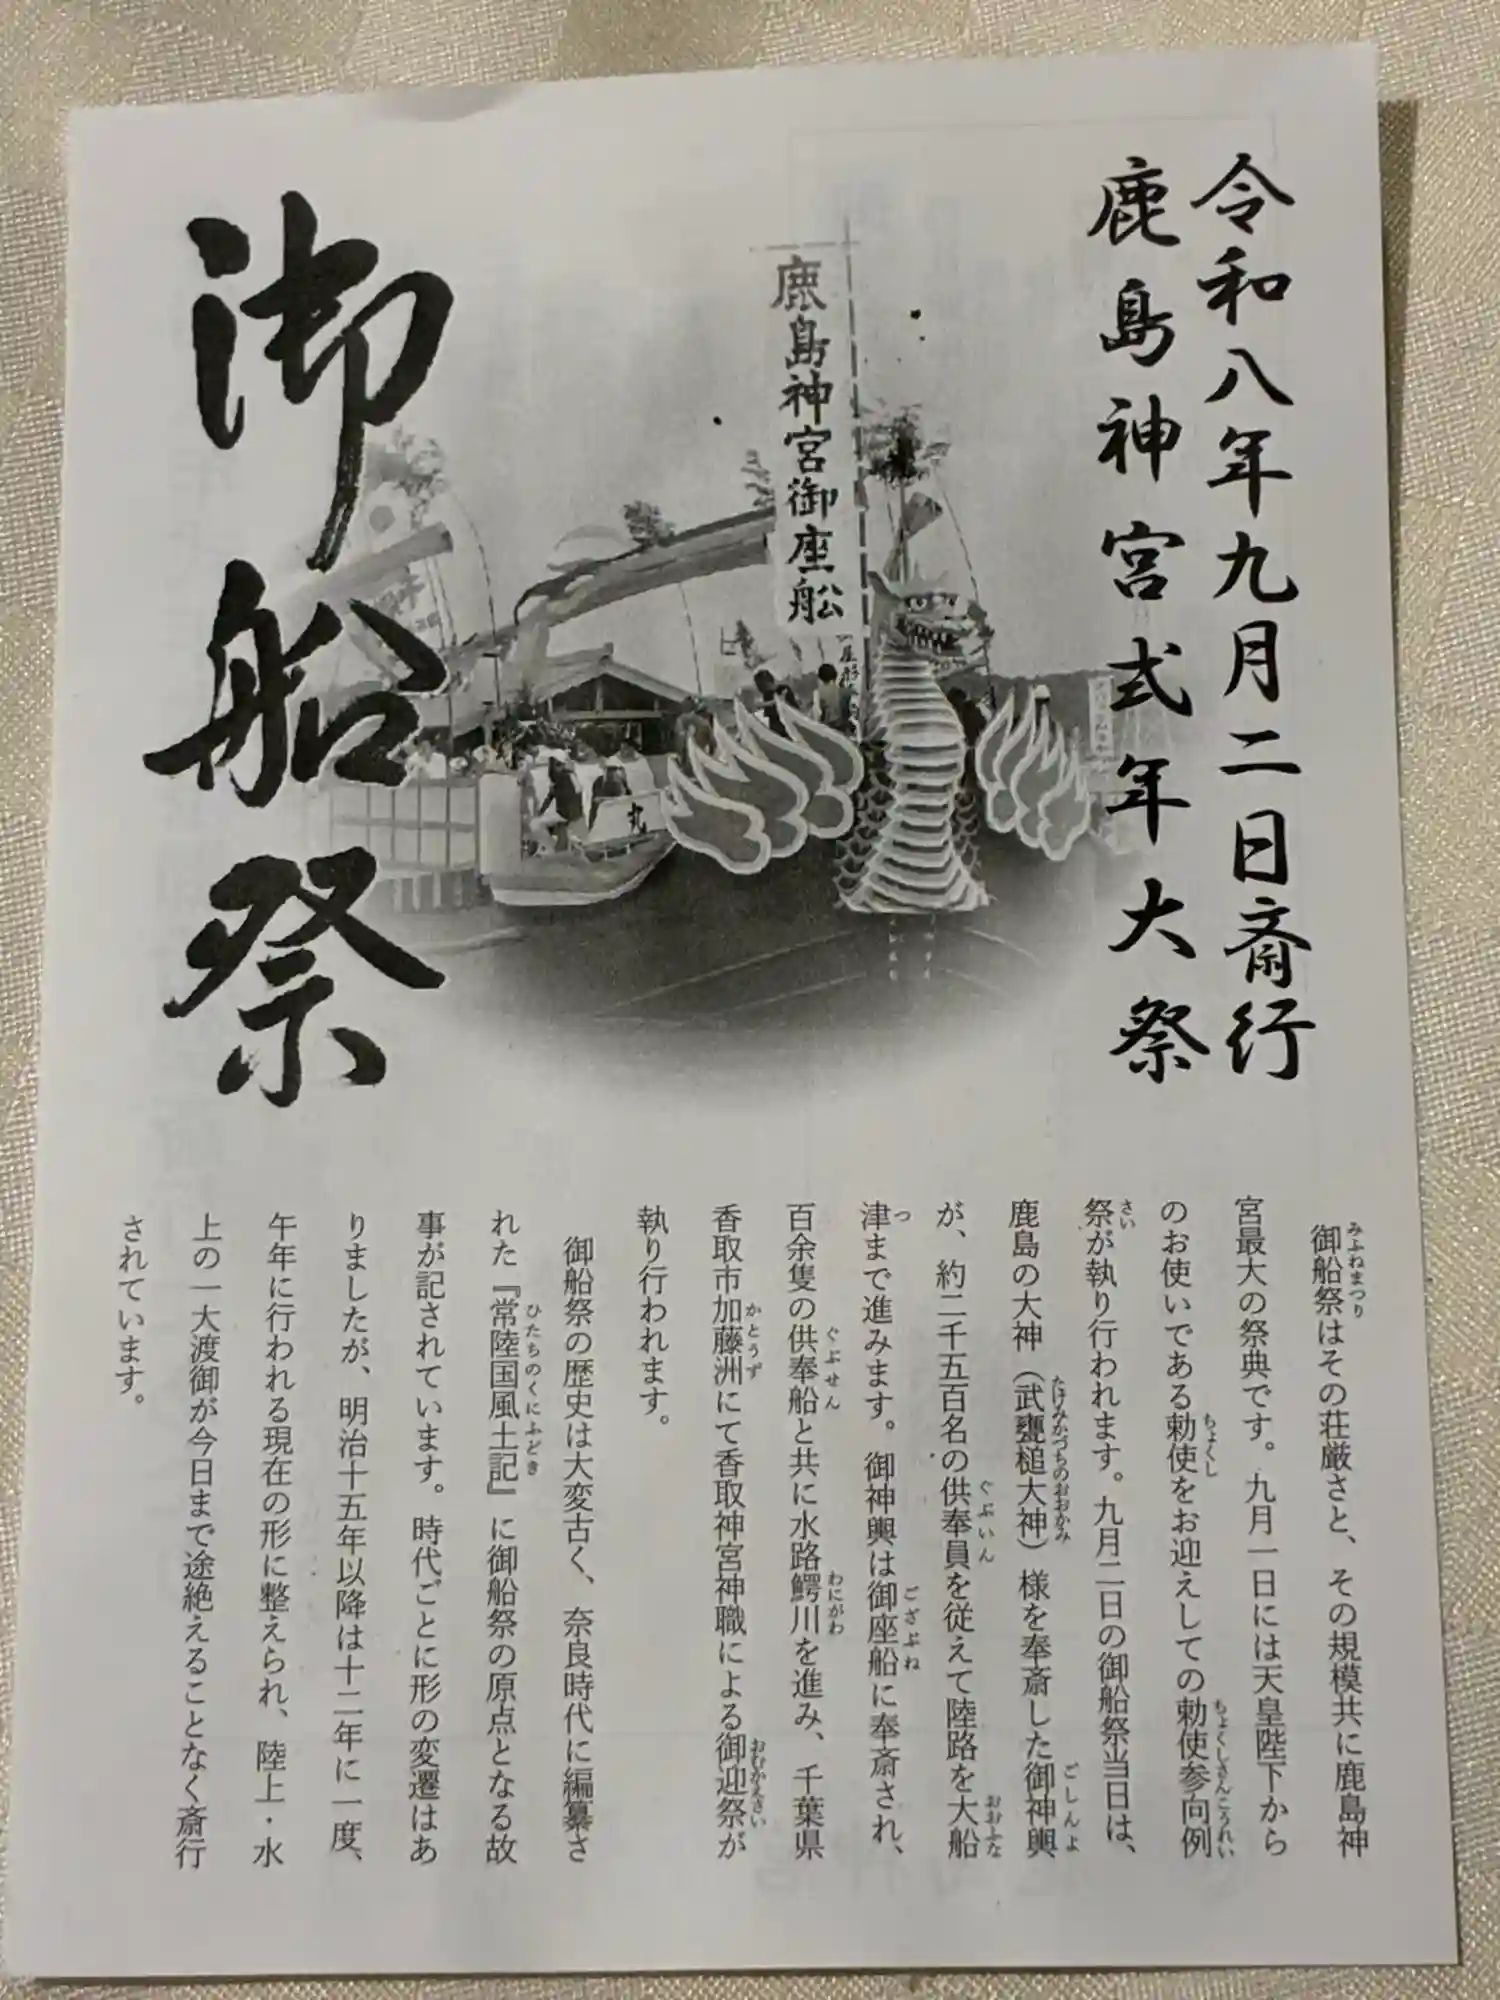 令和八年九月二日斎行
鹿島神宮式年大祭
御船祭
鹿島神宮御座船
丸
御船祭はその荘厳さと、その規模共に鹿島神
みふねまつり
宮最大の祭典です。九月一日には天皇陛下から
のお使いである勅使をお迎えしての勅使参向例
ちょくし
ちょくしさんこうれい
祭が執り行われます。九月二日の御船祭当日は、
さい
鹿島の大神（武甕槌大神）様を奉斎した御神輿
たけみかづちのおおかみ
ごしんよ
が、約二千五百名の供奉員を従えて陸路を大船
ぐぶいん
おおふな
津まで進みます。御神輿は御座船に奉斎され、
つ
ござぶね
百余隻の供奉船と共に水路鰐川を進み、千葉県
ぐぶせん
わにがわ
香取市加藤洲にて香取神宮神職による御迎祭が
かとうず
おむかえさい
執り行われます。
御船祭の歴史は大変古く、奈良時代に編纂さ
れた『常陸国風土記』に御船祭の原点となる故
ひたちのくにふどき
事が記されています。時代ごとに形の変遷はあ
りましたが、明治十五年以降は十二年に一度、
午年に行われる現在の形に整えられ、陸上・水
上の一大渡御が今日まで途絶えることなく斎行
されています。